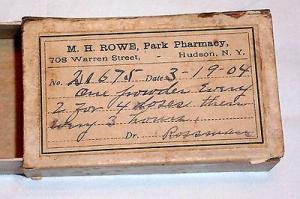 M. H. ROWE, Park Pharmacy,
708 Warren Street, - Hudson, N. Y.
No. 21675 Date 3-19-04
One powder every
2 for 4 doses then
every 3 hours
Dr. Rossman